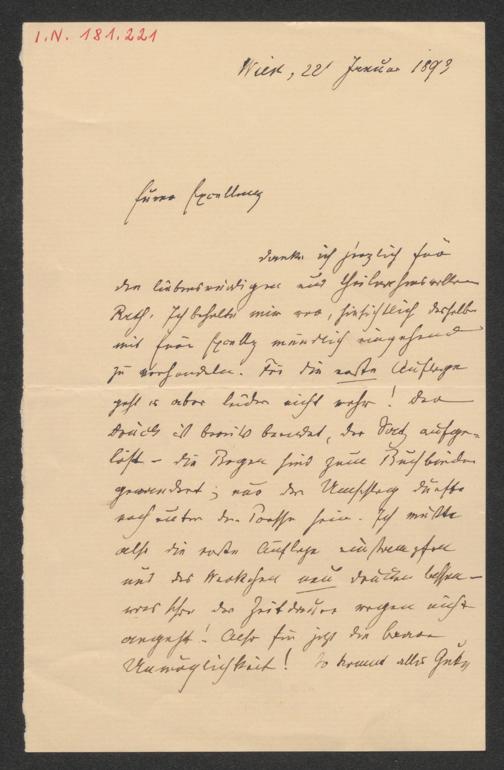 I.N. 181.221
Wien, 22 Januar 1893
Euere Excellenz
danke ich herzlich für
den liebenswürdigen und theilnahmsvollen
Rath. Ich behalte mir vor, hinsichtlich desselben
mit Euer Excellz mündlich eingehend
zu verhandeln. Für die erste Auflage
geht es aber leider nicht mehr! Der
Druck ist bereits beendet, der Satz aufge-
löst – die Bogen sind zum Buchbinder
gewandert; nur der Umschlag dürfte
noch unter der Presse sein. Ich müßte
also die erste Auflage einstampfen
und das Werkchen neu drucken lassen –
was schon der Zeitdauer wegen nicht
angeht! Also für jetzt die baare
Unmöglichkeit! So kommt alles Gute